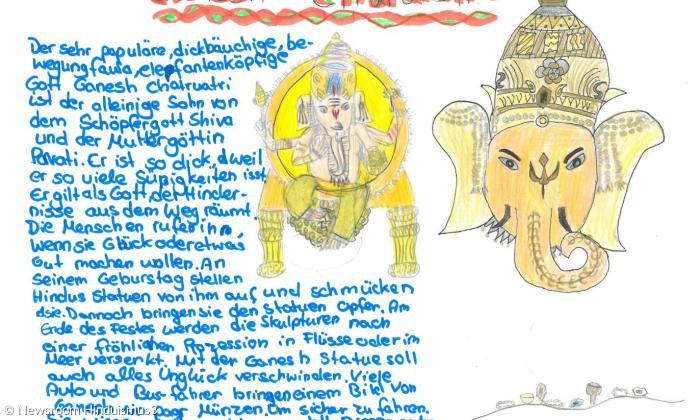 Der sehr populäre, dickbäuchige, be-
wegungfaule, elepfantenköpfige
Gott Ganesh Chatruatri
ist der alleinige Sohn von
dem Schöpfergott Shiva
und der Muttergöttin
Pavati. Er ist so dick, weil
er so viele Süpigkeiten isst.
Er gilt als Gott, der Hinder-
nisse aus dem Weg räumt.
Die Menschen rufen ihn,
wenn sie Glück oder etwas
Gut machen wollen. An
seinem Geburstag stellen
Hindus Statuen von ihm auf und schmücken
sie. Dannoch bringen sie den Statuen Opfer. Am
Ende des Festes werden die Skulpturen nach
einer fröhlichen Prozession in Flüsse oder im
Meer versenkt. Mit der Ganesh Statue soll
auch alles Unglück verschwinden. Viele
Auto und Bus-fahrer bringen einem Bild von
Münzen. Um sicher zu fahren.
© Newsroom Hinduismus3